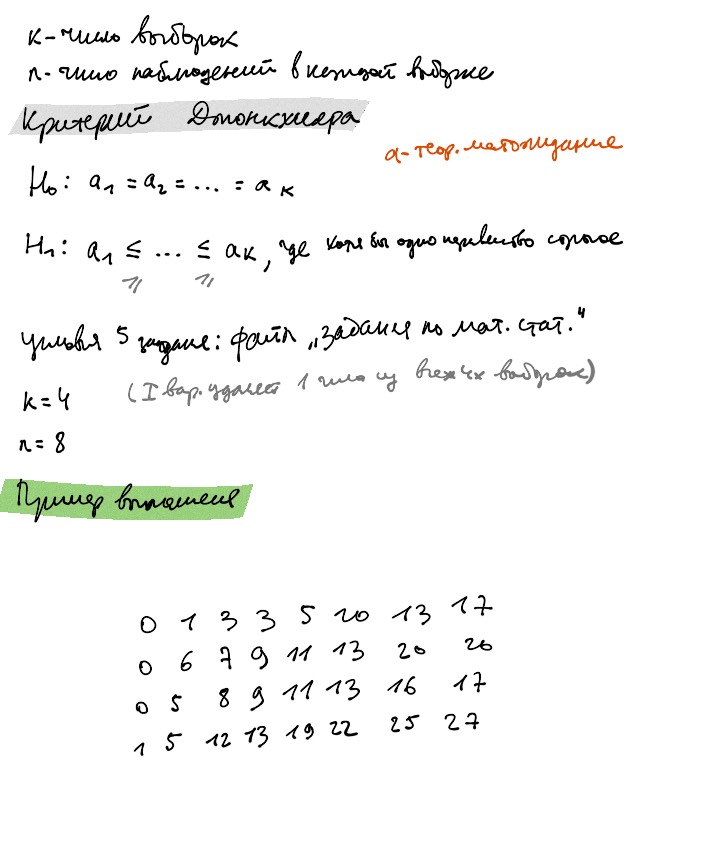 к - число выборок
n - число наблюдений в каждой выборке
Критерий Джонкхиера
a - теор. матожидание
H₀: a₁ = a₂ = ... = aк
H₁: a₁ ≤ ... ≤ aк, где хотя бы одно неравенство строгое
≥ ≥
условия 5 задание: файл „Задания по мат. стат."
(I вар. удаляет 1 число из всех 4х выборок)
k = 4
n = 8
Пример выполнения
0 1 3 3 5 20 13 17
0 6 7 9 11 13 20 20
0 5 8 9 11 13 16 17
1 5 12 13 19 22 25 27